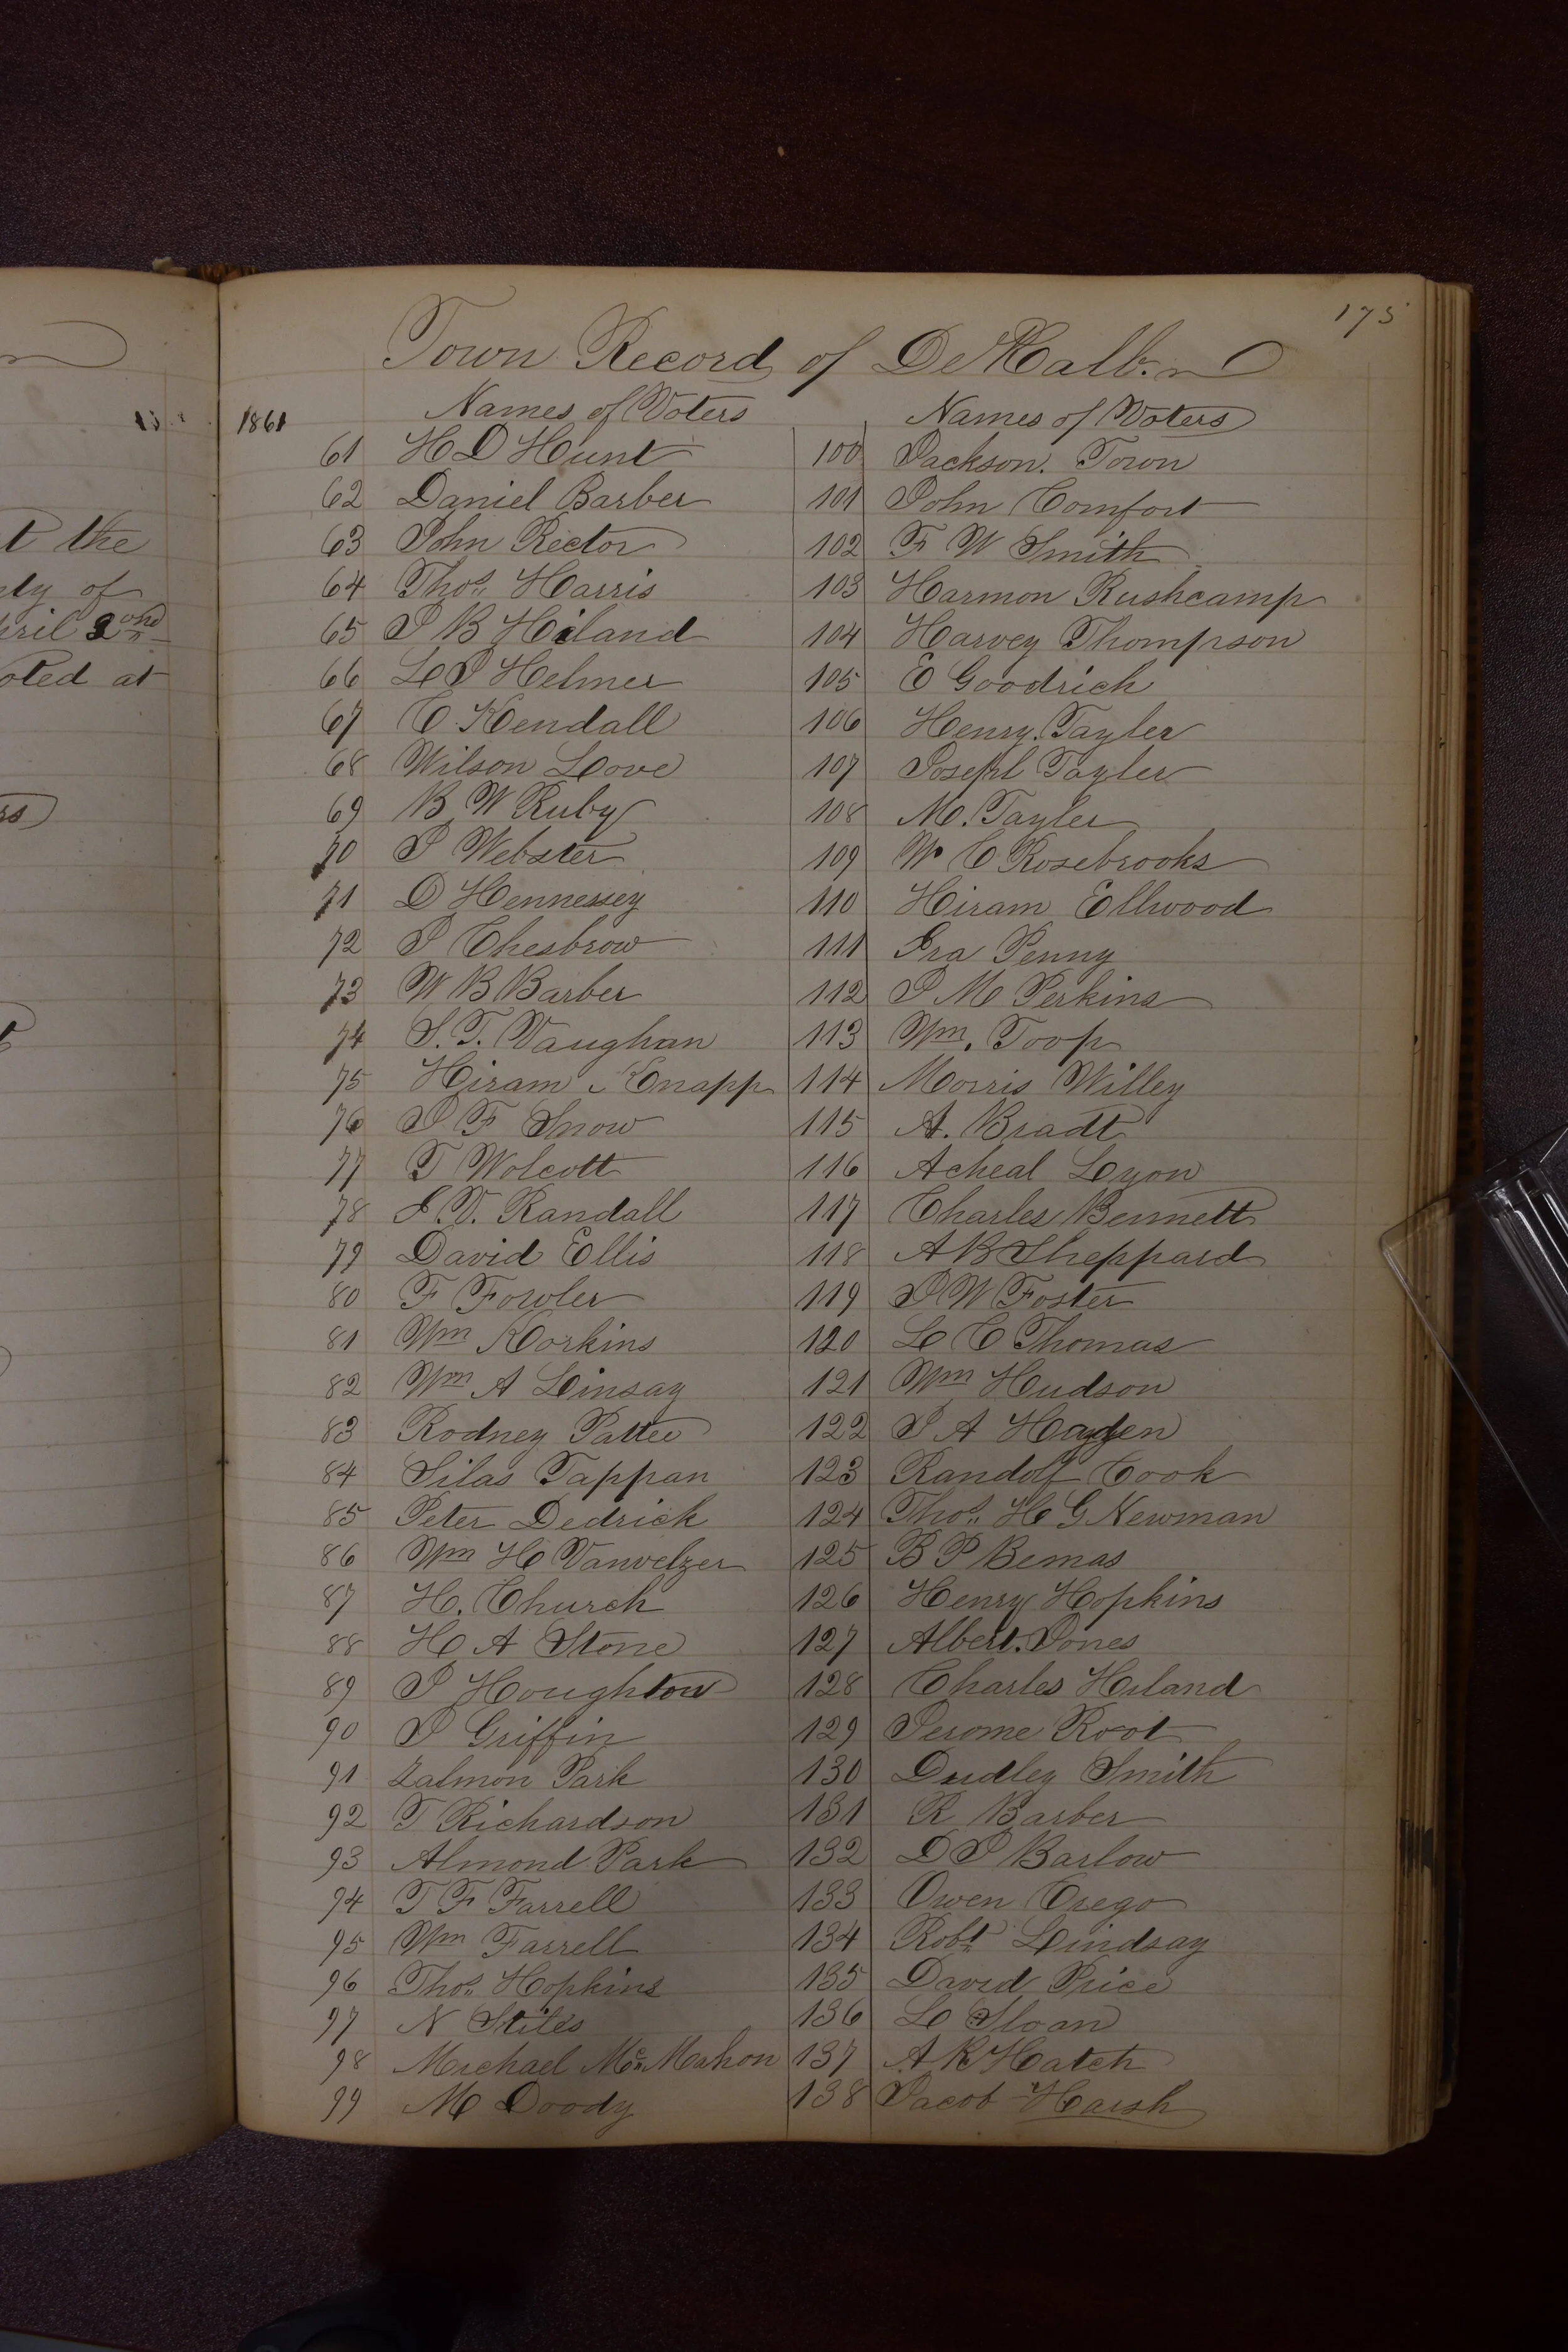 175
Town Record of DeKalb.
1861
Names of Voters
61 H D Hunt
62 Daniel Barber
63 John Rector
64 Thos. Harris
65 J B Hiland
66 L J Helmer
67 C. Kendall
68 Wilson Love
69 B W Ruby
70 J Webster
71 D Hennessey
72 J Chesbrow
73 W B Barber
74 S. T. Vaughan
75 Hiram Knapp
76 J F Snow
77 T Wolcott
78 J. V. Randall
79 David Ellis
80 F Fowler
81 Wm Korkins
82 Wm A Linsay
83 Rodney Pattee
84 Silas Tappan
85 Peter Dedrick
86 Wm H Vanvelzer
87 H. Church
88 H A Stone
89 J Houghton
90 J Griffin
91 Zalmon Park
92 T Richardson
93 Almond Park
94 T F Farrell
95 Wm Farrell
96 Thos. Hopkins
97 N Stiles
98 Michael Mc Mahon
99 M Doody
Names of Voters
100 Jackson. Town
101 John Comfort
102 F W Smith
103 Harmon Rushcamp
104 Harvey Thompson
105 E Goodrich
106 Henry. Tayler
107 Joseph Tayler
108 M. Tayler
109 W C Rosebrooks
110 Hiram Ellwood
111 Ira Penny
112 J M Perkins
113 Wm. Toop
114 Morris Willey
115 A. Bradt
116 Acheal Lyon
117 Charles Bennett
118 A B Sheppard
119 J W Foster
120 L C Thomas
121 Wm Hudson
122 J A Hayden
123 Randolf Cook
124 Thos. H G Newman
125 B P Bemas
126 Henry Hopkins
127 Albert. Jones
128 Charles Hiland
129 Jerome Root
130 Dudley Smith
131 R Barber
132 D J Barlow
133 Owen Crego
134 Robt Lindsay
135 David Price
136 L Sloan
137 A R Hatch
138 Jacob Harsh
t the
nty of
pril 2ond
oted at